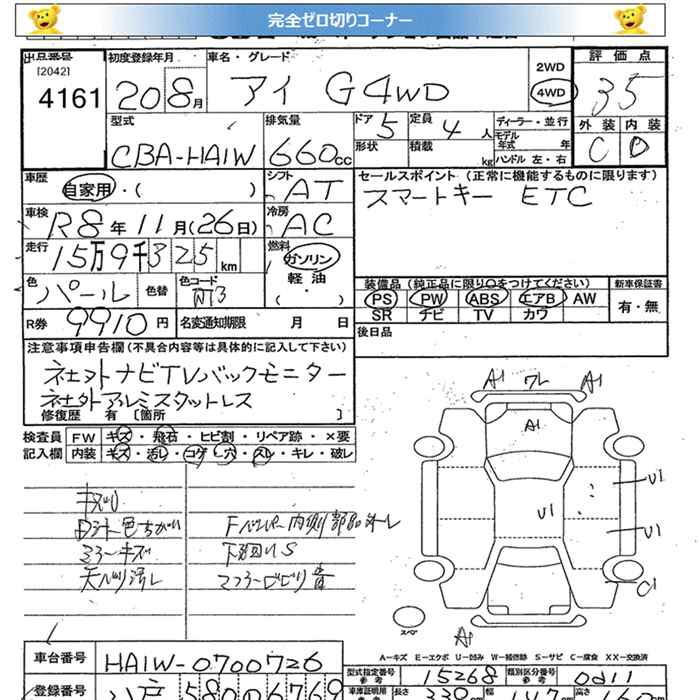 完全ゼロ切りコーナー
出品番号 初度登録年月 車名・グレード 評価点
[2042]
4161 20 8月 アイ G4WD 2WD 4WD 35
型式 排気量 ドア 5 定員 4人 ディーラー・並行 外装 内装
CBA-HA1W 660cc 形状 積載 kg モデル年式 年 ハンドル 左・右 C D
車歴 自家用・( ) シフト AT セールスポイント(正常に機能するものに限ります)
スマートキー ETC
車検 R8年11月(26日) 冷房 AC
走行 15万9千325km 燃料 ガソリン
軽油
・( )
色 パール 色替 色コード 装備品(純正品に限り○をつけてください) 新車保証書
PS PW ABS エアB AW 有・無
SR ナビ TV カワ
R券 9910円 名変通知期限 月 日 後日品
注意事項申告欄(不具合内容等は具体的に記入して下さい)
社外ナビTVバックモニター
社外アルミスタットレス
修復歴 有 [箇所 ]
検査員 FW キズ・飛石・ヒビ割・リペア跡・×要
記入欄 内装 キズ・汚レ・コゲ・穴・スレ・キレ・破レ
A1 ワレ A1
A1
U1
U1
U1
C1
A1
キズ
色ちがい Fバンパー内側部品
ミラーキズ 下廻りS
天バリ汚レ マフラービビリ音
スペア
A-キズ E-エクボ U-凹み W-補修跡 S-サビ C-腐食 XX-交換済
車台番号 HA1W-0700726 型式指定番号 15268 類別区分番号 0011
参考 参考
登録番号 580 6769 車庫証明用 長さ 339 cm 幅 147 cm 高さ